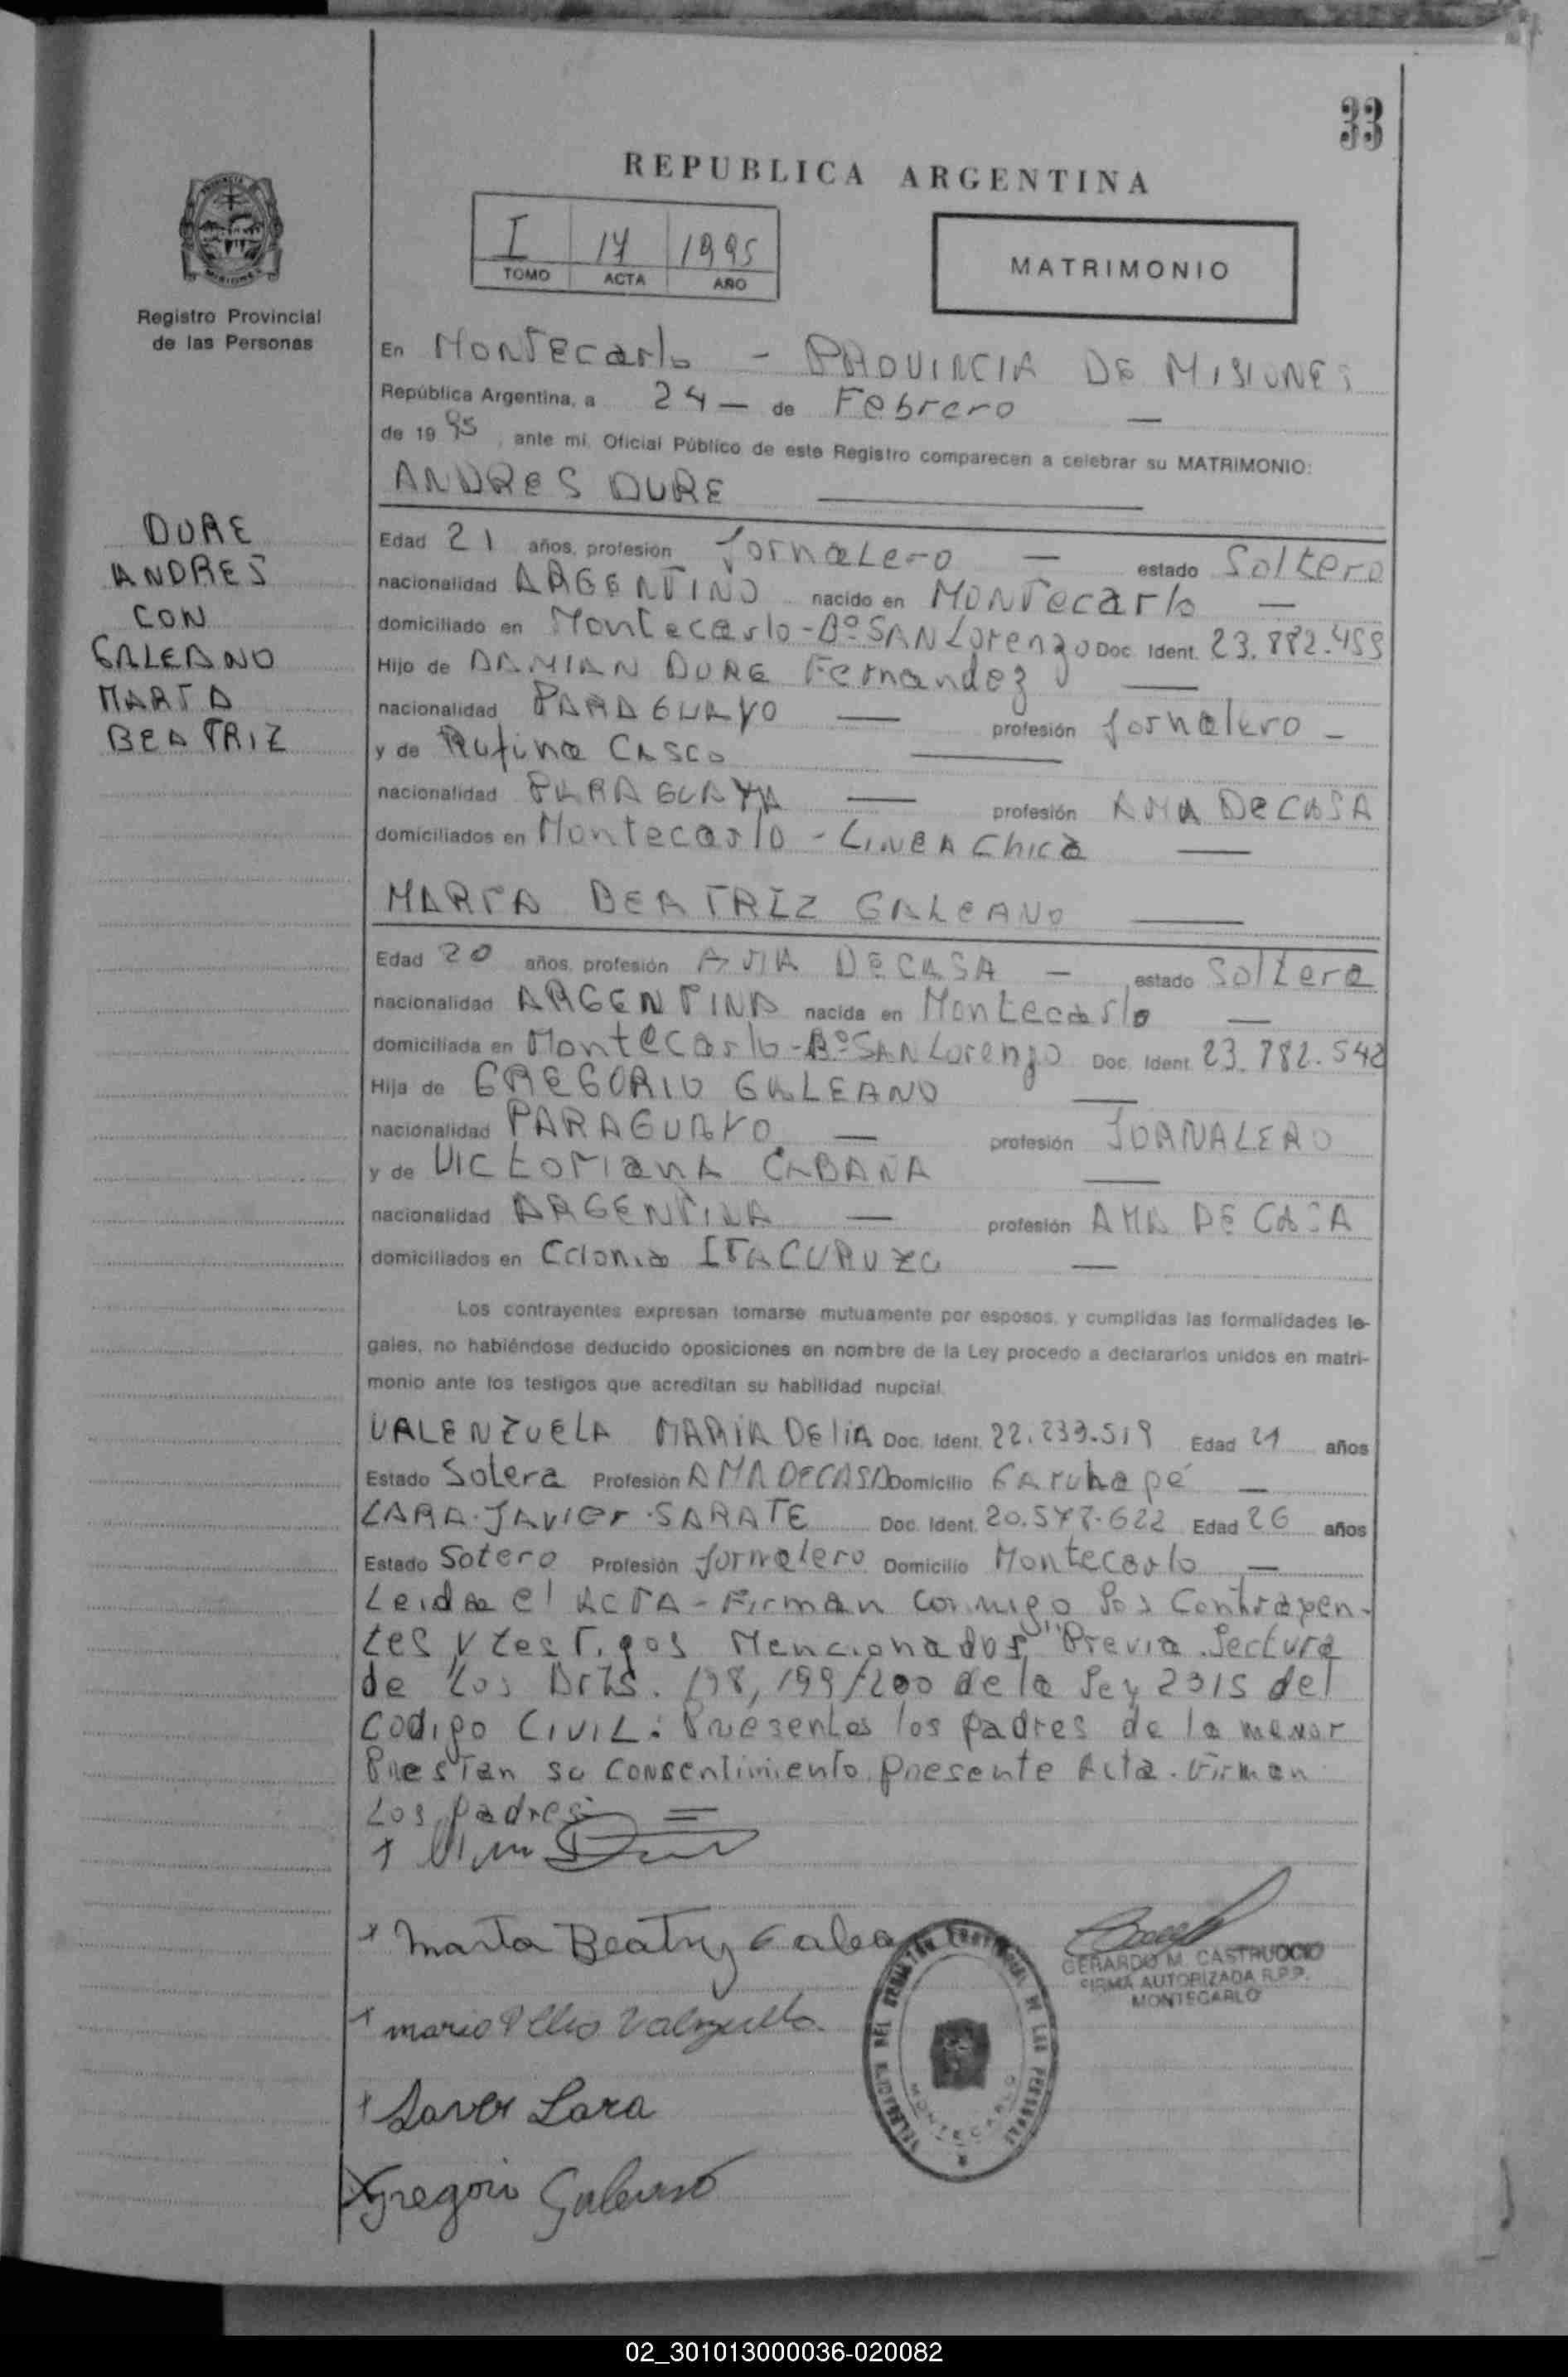 33
REPUBLICA ARGENTINA
I 14 1995
TOMO ACTA AÑO
MATRIMONIO
Registro Provincial
de las Personas
En Montecarlo - PROVINCIA DE MISIONES
República Argentina, a 24 — de Febrero —
de 1995, ante mi, Oficial Público de este Registro comparecen a celebrar su MATRIMONIO:
ANDRES DURE
DURE
ANDRES
CON
GALEANO
MARTA
BEATRIZ
Edad 21 años, profesión Jornalero — estado Soltero
nacionalidad ARGENTINO nacido en Montecarlo —
domiciliado en Montecarlo - Bº SAN Lorenzo Doc. Ident. 23.882.459
Hijo de DAMIAN DURE Fernandez —
nacionalidad PARAGUAYO — profesión Jornalero -
y de Rufina Casco —
nacionalidad PARAGUAYA — profesión AMA DE CASA
domiciliados en Montecarlo - LINEA Chica —
MARTA BEATRIZ GALEANO —
Edad 20 años, profesión AMA DE CASA — estado Soltera
nacionalidad ARGENTINA nacida en Montecarlo —
domiciliada en Montecarlo - Bº SAN Lorenzo Doc. Ident. 23.782.542
Hija de GREGORIO GALEANO —
nacionalidad PARAGUAYO — profesión JORNALERO
y de VICtoriana CABAÑA —
nacionalidad ARGENTINA — profesión AMA DE CASA
domiciliados en Colonia ITACURUZU —
Los contrayentes expresan tomarse mutuamente por esposos, y cumplidas las formalidades le-
gales, no habiéndose deducido oposiciones en nombre de la Ley procedo a declararlos unidos en matri-
monio ante los testigos que acreditan su habilidad nupcial.
VALENZUELA MARIA DELIA Doc. Ident. 22.233.519 Edad 21 años
Estado Solera Profesión AMA DE CASA Domicilio Garuhapé —
LARA. JAVIER. SARATE Doc. Ident. 20.577.622 Edad 26 años
Estado Sotero Profesión Jornalero Domicilio Montecarlo —
Leida el ACTA - Firman conmigo los Contrayen-
tes y testigos Mencionados, Previa lectura
de los Arts. 198, 199/200 de la Ley 2315 del
Codigo CIVIL: Presentes los padres de la menor
Prestan su consentimiento presente Acta. Firman
Los padres =
x Marta Beatriz Galea
x maria Delia Valenzuela
x Javier Lara
x Gregorio Galeano
DELEGACION DEL REGISTRO PROVINCIAL DE LAS PERSONAS
MONTECARLO
GERARDO M. CASTRUCCIO
FIRMA AUTORIZADA R.P.P.
MONTECARLO
02_301013000036-020082